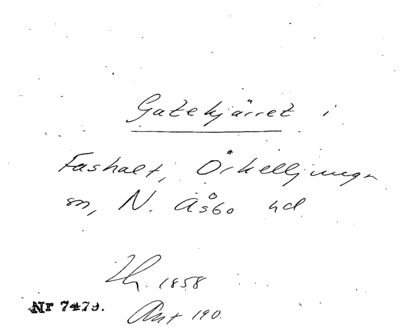 Gatekjärret i
Fashalt, Örkelljunga
sn, N. Åsbo hd
Th. 1858
Nr 7479.
Ant 190.